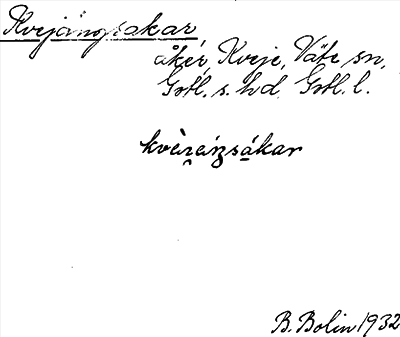 Kvejängsakar
åker, Kveje, Väte sn,
Gotl. s. hd. Gotl. l.
kvèi̯äŋsákar
B. Bolin 1932